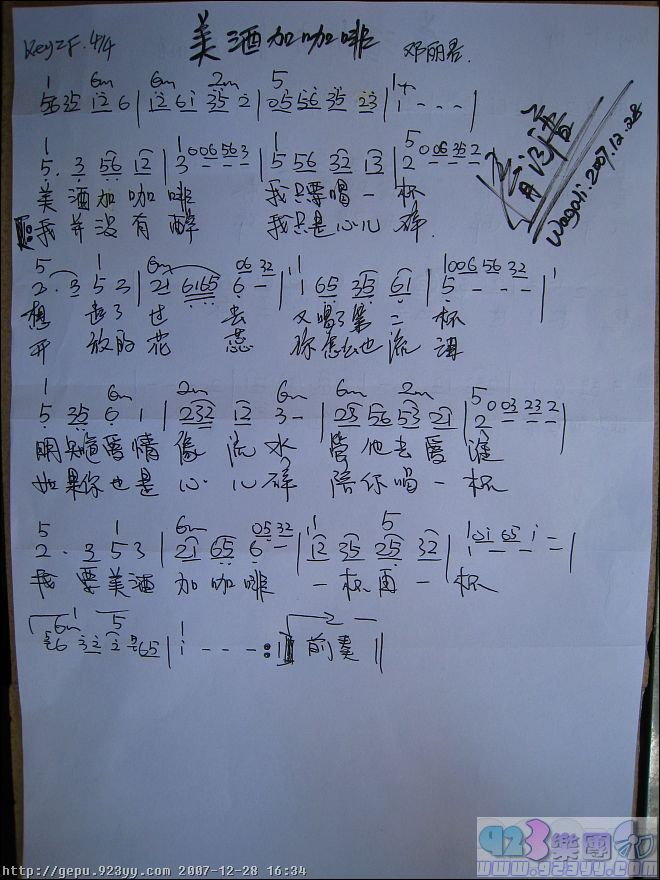 Key=F. 4/4 美酒加咖啡 邓丽君.
1 6m 6m 2m 5 1
5635 i2 6 | i2 6i 35 2 | 05 56 35 23 | 1 - - - |
Wagoli.2007.12.28
1 1 1 5
5. 3 56 i2 | 3 006 563 | 5 56 32 13 | 2 0 06 35 2 |
美 酒 加 咖 啡 我 只要喝 一 杯
我 并 没 有 醉 我 只是 心儿 碎.
5 6m 06 32 1 1006 56 32
2. 3 5 3 | 21 6165 6 - | 1 65 35 61 | 5 - - - |
想 起了 过 去 又喝了 第 二 杯
开 放的 花 蕊 你怎么也 流 泪
1 6m 2m 6m 6m 2m 5
5 35 6 1 | 232 12 3 - | 23 56 53 21 | 2 0 03 23 2 |
明知道爱情 像 流 水 管 他去爱 谁
如果你也是 心 儿碎 陪你喝 一 杯
5 1 6m 05 32 1 5
2. 3 5 3 | 21 65 6 - | 12 35 25 32 | 1 0i 65 i - |
我 要美酒 加 咖啡 一 杯再 一 杯
6m 1 5 1 2
56 32 2 565 | i - - - :|| 前奏 ||
923樂團
www.923yy.com
http://gepu.923yy.com 2007-12-28 16:34